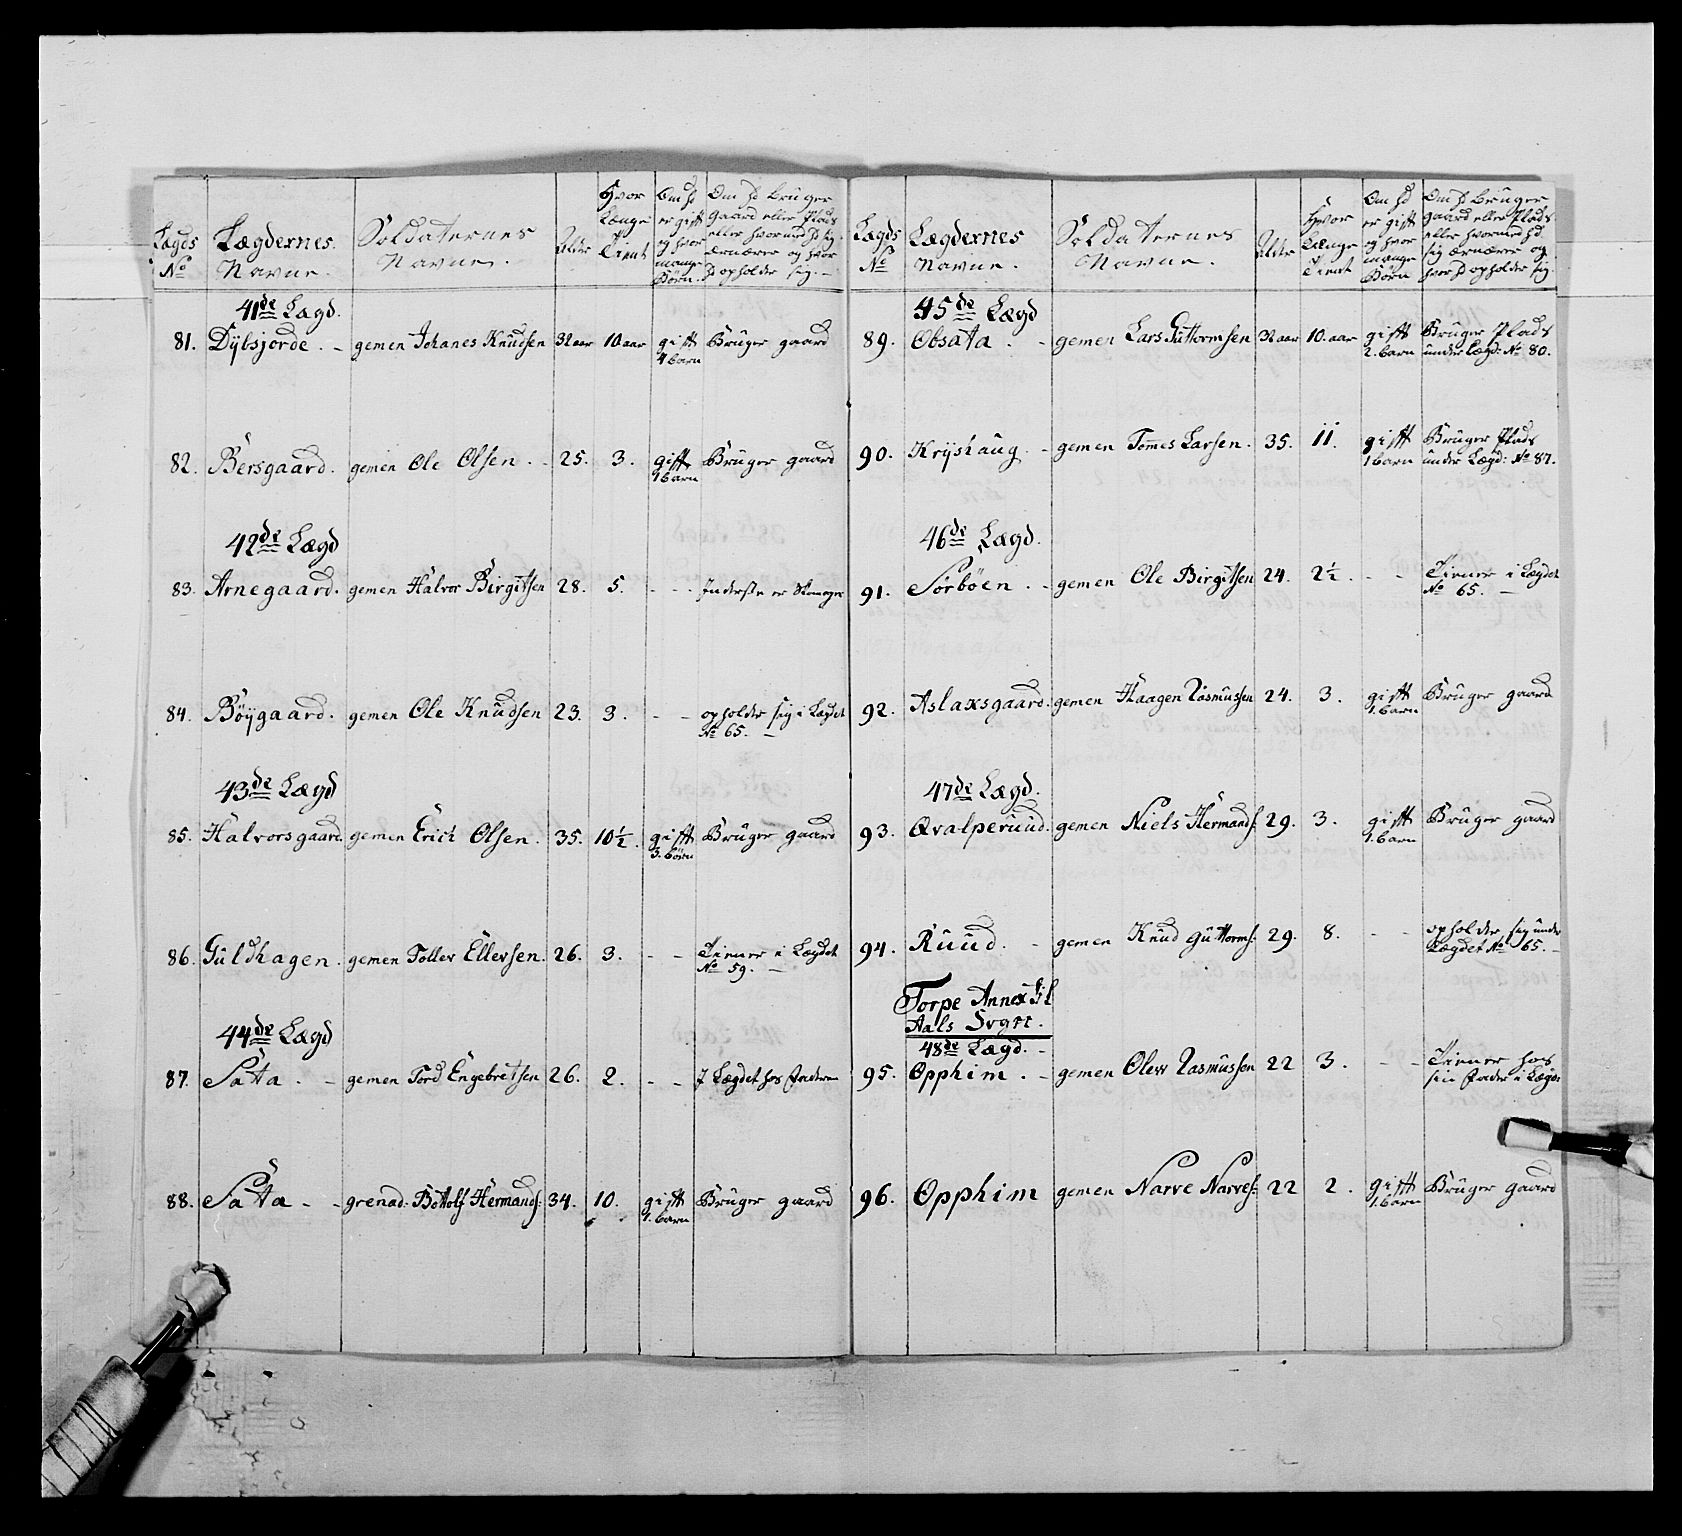 Lægds No | Lægdernes Navne. | Soldaternes Navne. | Alder | Hvor Længe Tient | Om hd er gift og hvor mange Børn. | Om hd bruger gaard eller Plads eller hvormed hd sig ernærer og hvor hd opholder sig.
41de Lægd.
81. Dÿbsjorde. - gemen Johanes Knudsen 32 aar 10 aar gift 4 barn Bruger gaard
82. Bersgaard. gemen Ole Olsen. - 25. 3. gift 1 barn Bruger gaard
42de Lægd
83. Arnegaard. gemen Halvor Birgitsen 28. 5. - - Inderste er
84. Böÿgaard. gemen Ole Knudsen 23. 3. - - opholder sig i Lægdet No 65. -
43de Lægd
85. Halvorsgaard. gemen Erich Olsen. 35. 10½. gift 3. börn Bruger gaard
86. Guldhagen. gemen Toller Ellevsen. 26. 3. - - Tiener i Lægdet No 59. -
44de Lægd
87. Sata. - gemen Tord Engebretsen 26. 2. - - I Lægdet hos Faderen
88. Sata - - grenad: Bottolf Hermands: 34. 10. gift 1. barn Bruger gaard
Lægds No | Lægdernes Navne. | Soldaternes Navne. | Alder | Hvor Længe Tient | Om hd er gift og hvor mange Börn | Om hd bruger gaard eller Plads eller hvormed hd sig ernærer og hvor hd opholder sig.
45de Lægd
89. Obsata. - gemen Lars Guttormsen 32 aar 10. aar gift 2. barn Bruger Plads under Lægd: No 80.
90. Krÿshaug. - gemen Tomes Larsen. 35. 11. gift 1 barn Bruger Plads under Lægd: No 87.
46de Lægd.
91. Sörböen. - gemen Ole Birgitsen 24. 2½. - - Tiener i Lægdet No 65. -
92. Aslaxsgaard. gemen Haagen Rasmussen 24. 3. gift 1. barn Bruger gaard
47de Lægd.
93. Qvalperuud. gemen Niels Hermands: 29. 3. gift 1. barn Bruger gaard
94. Ruud. - gemen Knud Guttorms: 29. 8. - - opholder sig under Lægdet No 65. -
Torpe Annex til
Aals Sogn.
48de Lægd. -
95. Opphim. - gemen Olew Rasmussen 22 3. - - Tiener hos sin Fader i Lægdet
96. Opphim gemen Narve Narves: 22 2. gift 1. barn Bruger gaard